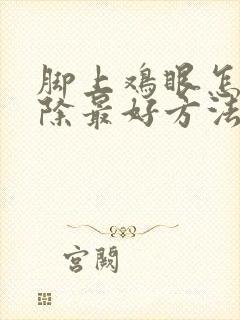 脚上鸡眼怎
除最好方法
宫阙